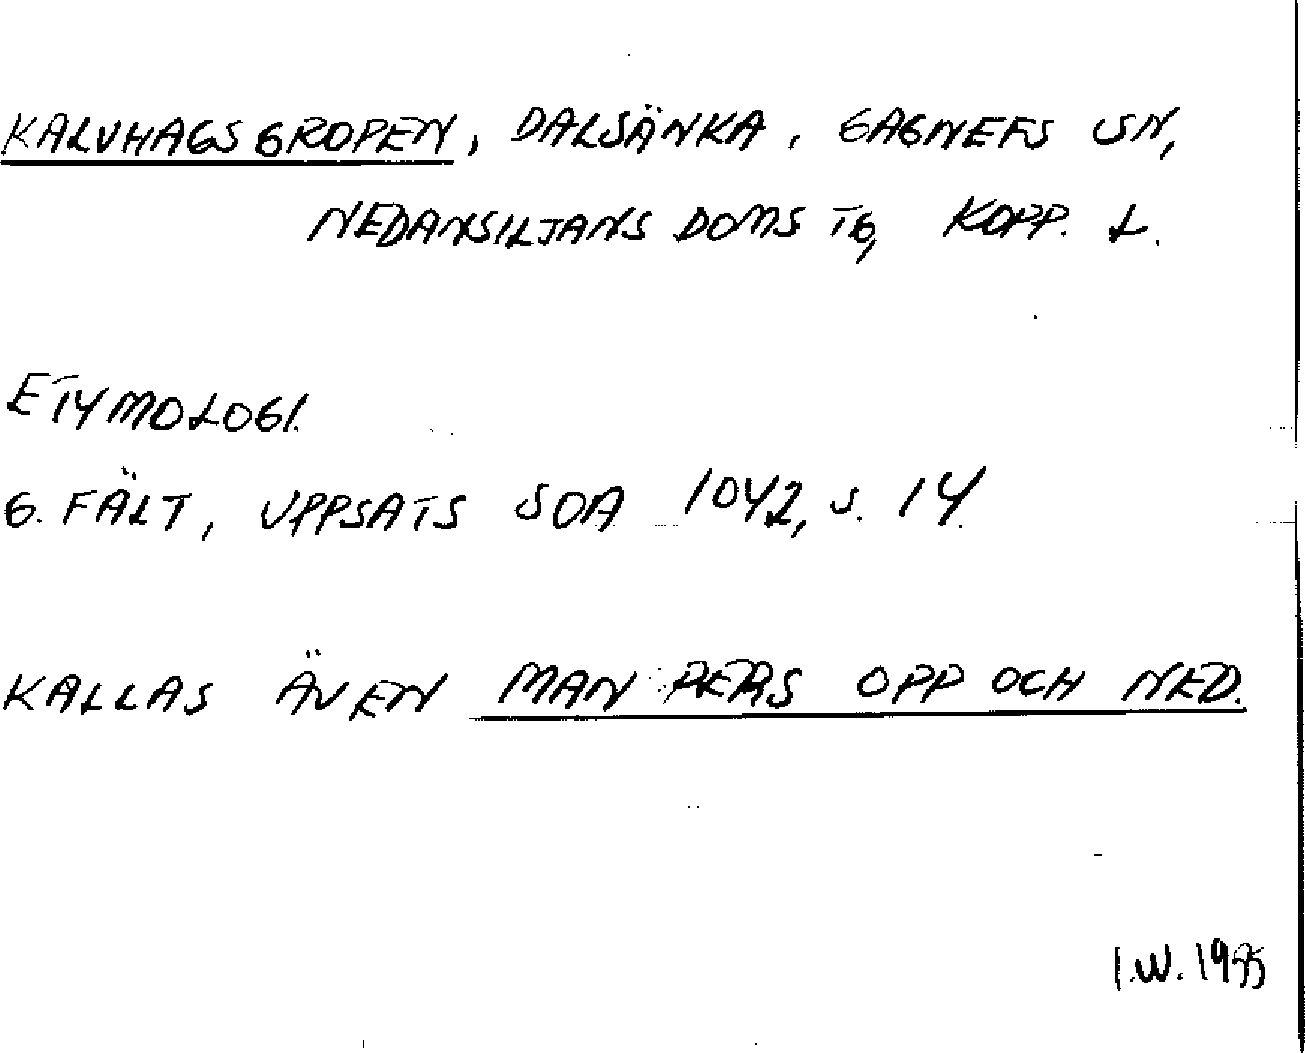 KALVHAGSGROPEN, DALSÄNKA, GAGNEFS SN,
NEDANSILJANS DOMS TG, KOPP. L.
ETYMOLOGI.
G. FÄLT, UPPSATS SOA 1042, S. 14.
KALLAS ÄVEN MAN PERS OPP OCH NED.
I.W.